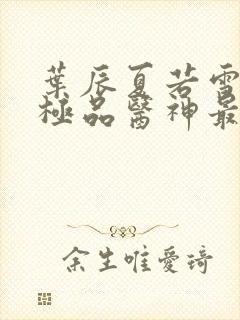 葉辰夏若雪
極品醫神最
余生唯愛琦